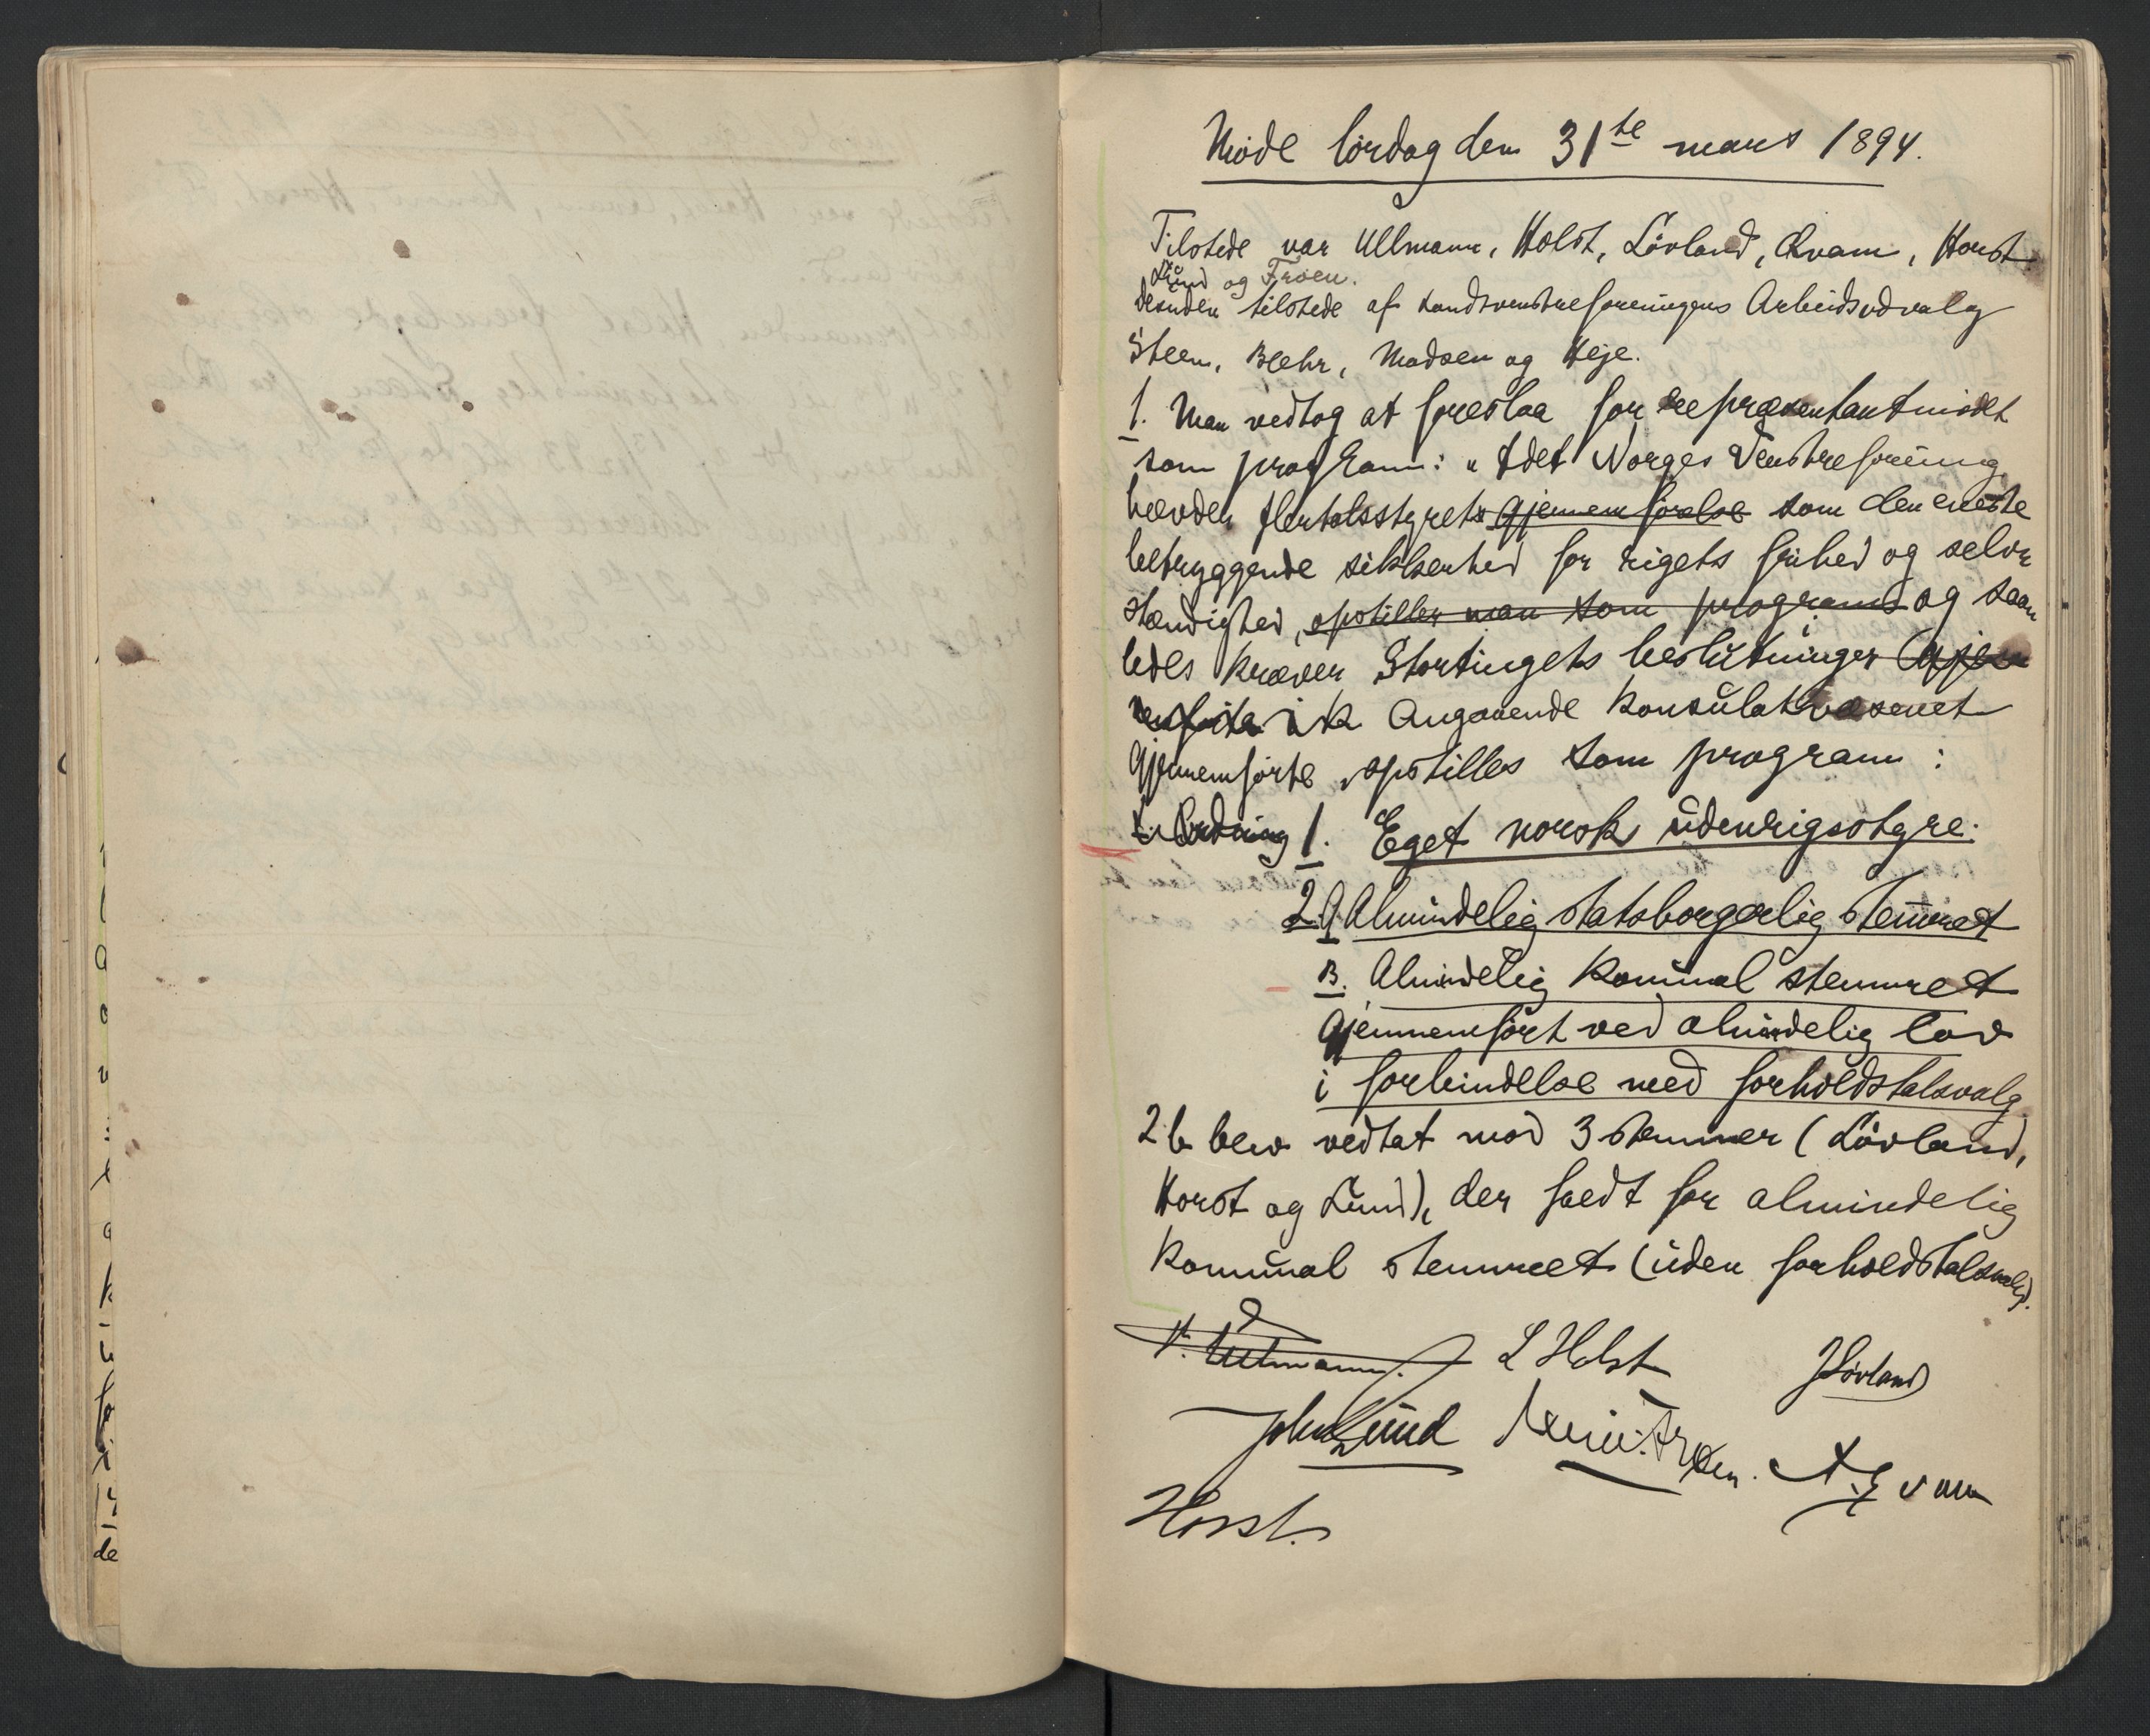 Møde lördag den 31te mars 1894.
Tilstede var Ullmann, Holst, Lövland, Qvam, Horst
Lund og Fröen.
desuden tilstede af Landsvenstreforeningens Arbeidsudvalg
Steen, Blehr, Madsen og Heje.
1. Man vedtog at foreslaa for repræsentantmödet
som program: "Idet Norges Venstreforening
hævder flertalsstyrets gjennemförelse som den eneste
betryggende sikkerhed for rigets frihed og selv-
stændighed, opstiller man som program og saa-
ledes kræver Stortingets beslutninger
angaaende konsulatvæsenet
gjennemförte, opstilles som program:
Ordning 1. Eget norsk udenrigsstyre.
2. A Almindelig statsborgerlig stemmeret
B. Almindelig kommunal stemmeret
gjennemfört ved almindelig lov
i forbindelse med forholdstalsvalg
2 b blev vedtat mod 3 stemmer (Lövland,
Horst og Lund), der stemte for almindelig
kommunal stemmeret (uden forholdstalsvalg).
V. Ullmann. L Holst J Lövland
John Lund Fröen. A Qvam
Horst.